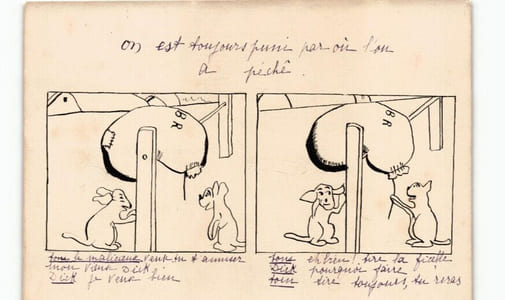 On est toujours puni par où l'on
a pêchê.
B R
B R
tom le malicieux veux tu t amuser
mon vieux Dick
Dick je veux bien
tom eh bien ! tire la ficelle
Dick pourquoi faire
tom tire toujours, tu veras